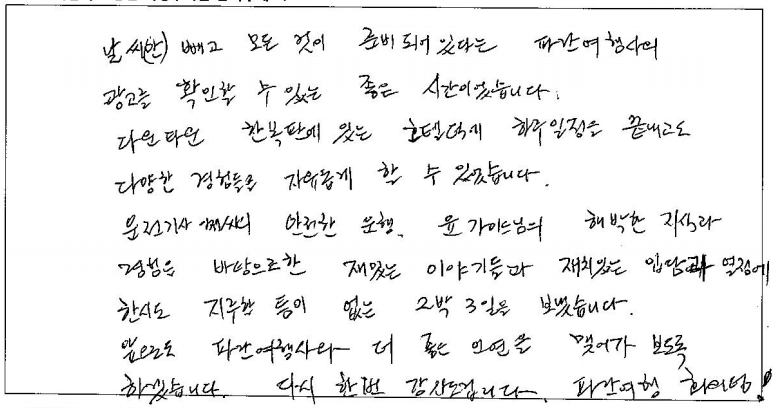 날씨(만) 빼고 모든 것이 준비되어 있다는 파란여행사의
광고를 확인할 수 있는 좋은 시간이었습니다.
다운타운 한복판에 있는 호텔덕에 하루일정을 끝내고도
다양한 경험들을 자유롭게 할 수 있었습니다.
운전기사 의 안전한 운행, 윤가이드님의 해박한 지식과
경험을 바탕으로한 재밌는 이야기들과 재치있는 입담과 열정에
한시도 지루할 틈이 없는 2박 3일을 보냈습니다.
앞으로도 파란여행사와 더 좋은 인연을 맺어가 보도록
하겠습니다. 다시 한번 감사드립니다. 파란여행 화이팅!